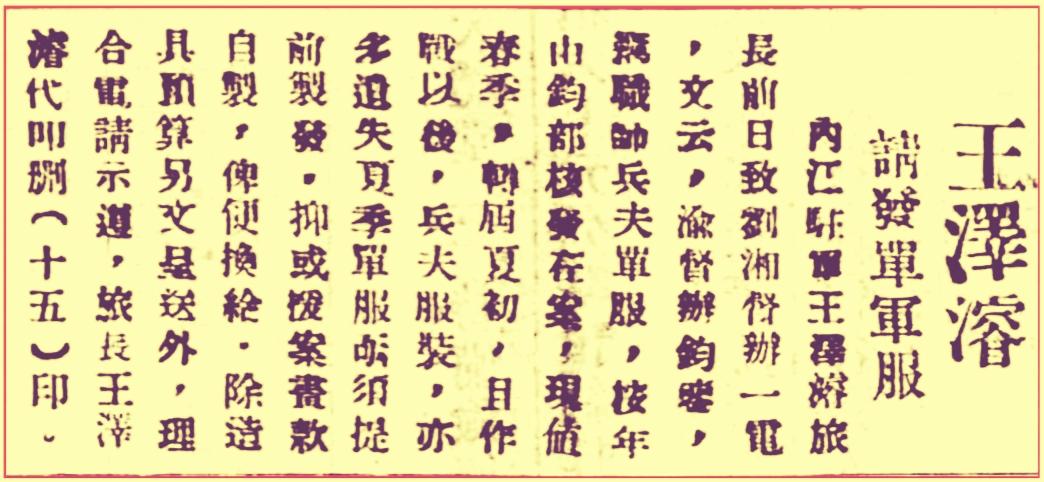 王澤濬
請發單軍服
內江駐軍王澤濬旅
長前日致劉湘督辦一電
，文云，渝督辦鈞鑒，
竊職師兵夫單服，按年
由鈞部核發在案，現值
春季，轉屆夏初，且作
戰以後，兵夫服裝，亦
多遺失夏季單服亟須提
前製發．抑或援案畫款
自製，俾便換給．除造
具預算另文呈送外，理
合電請示遵，旅長王澤
濬代叩刪（十五）印．